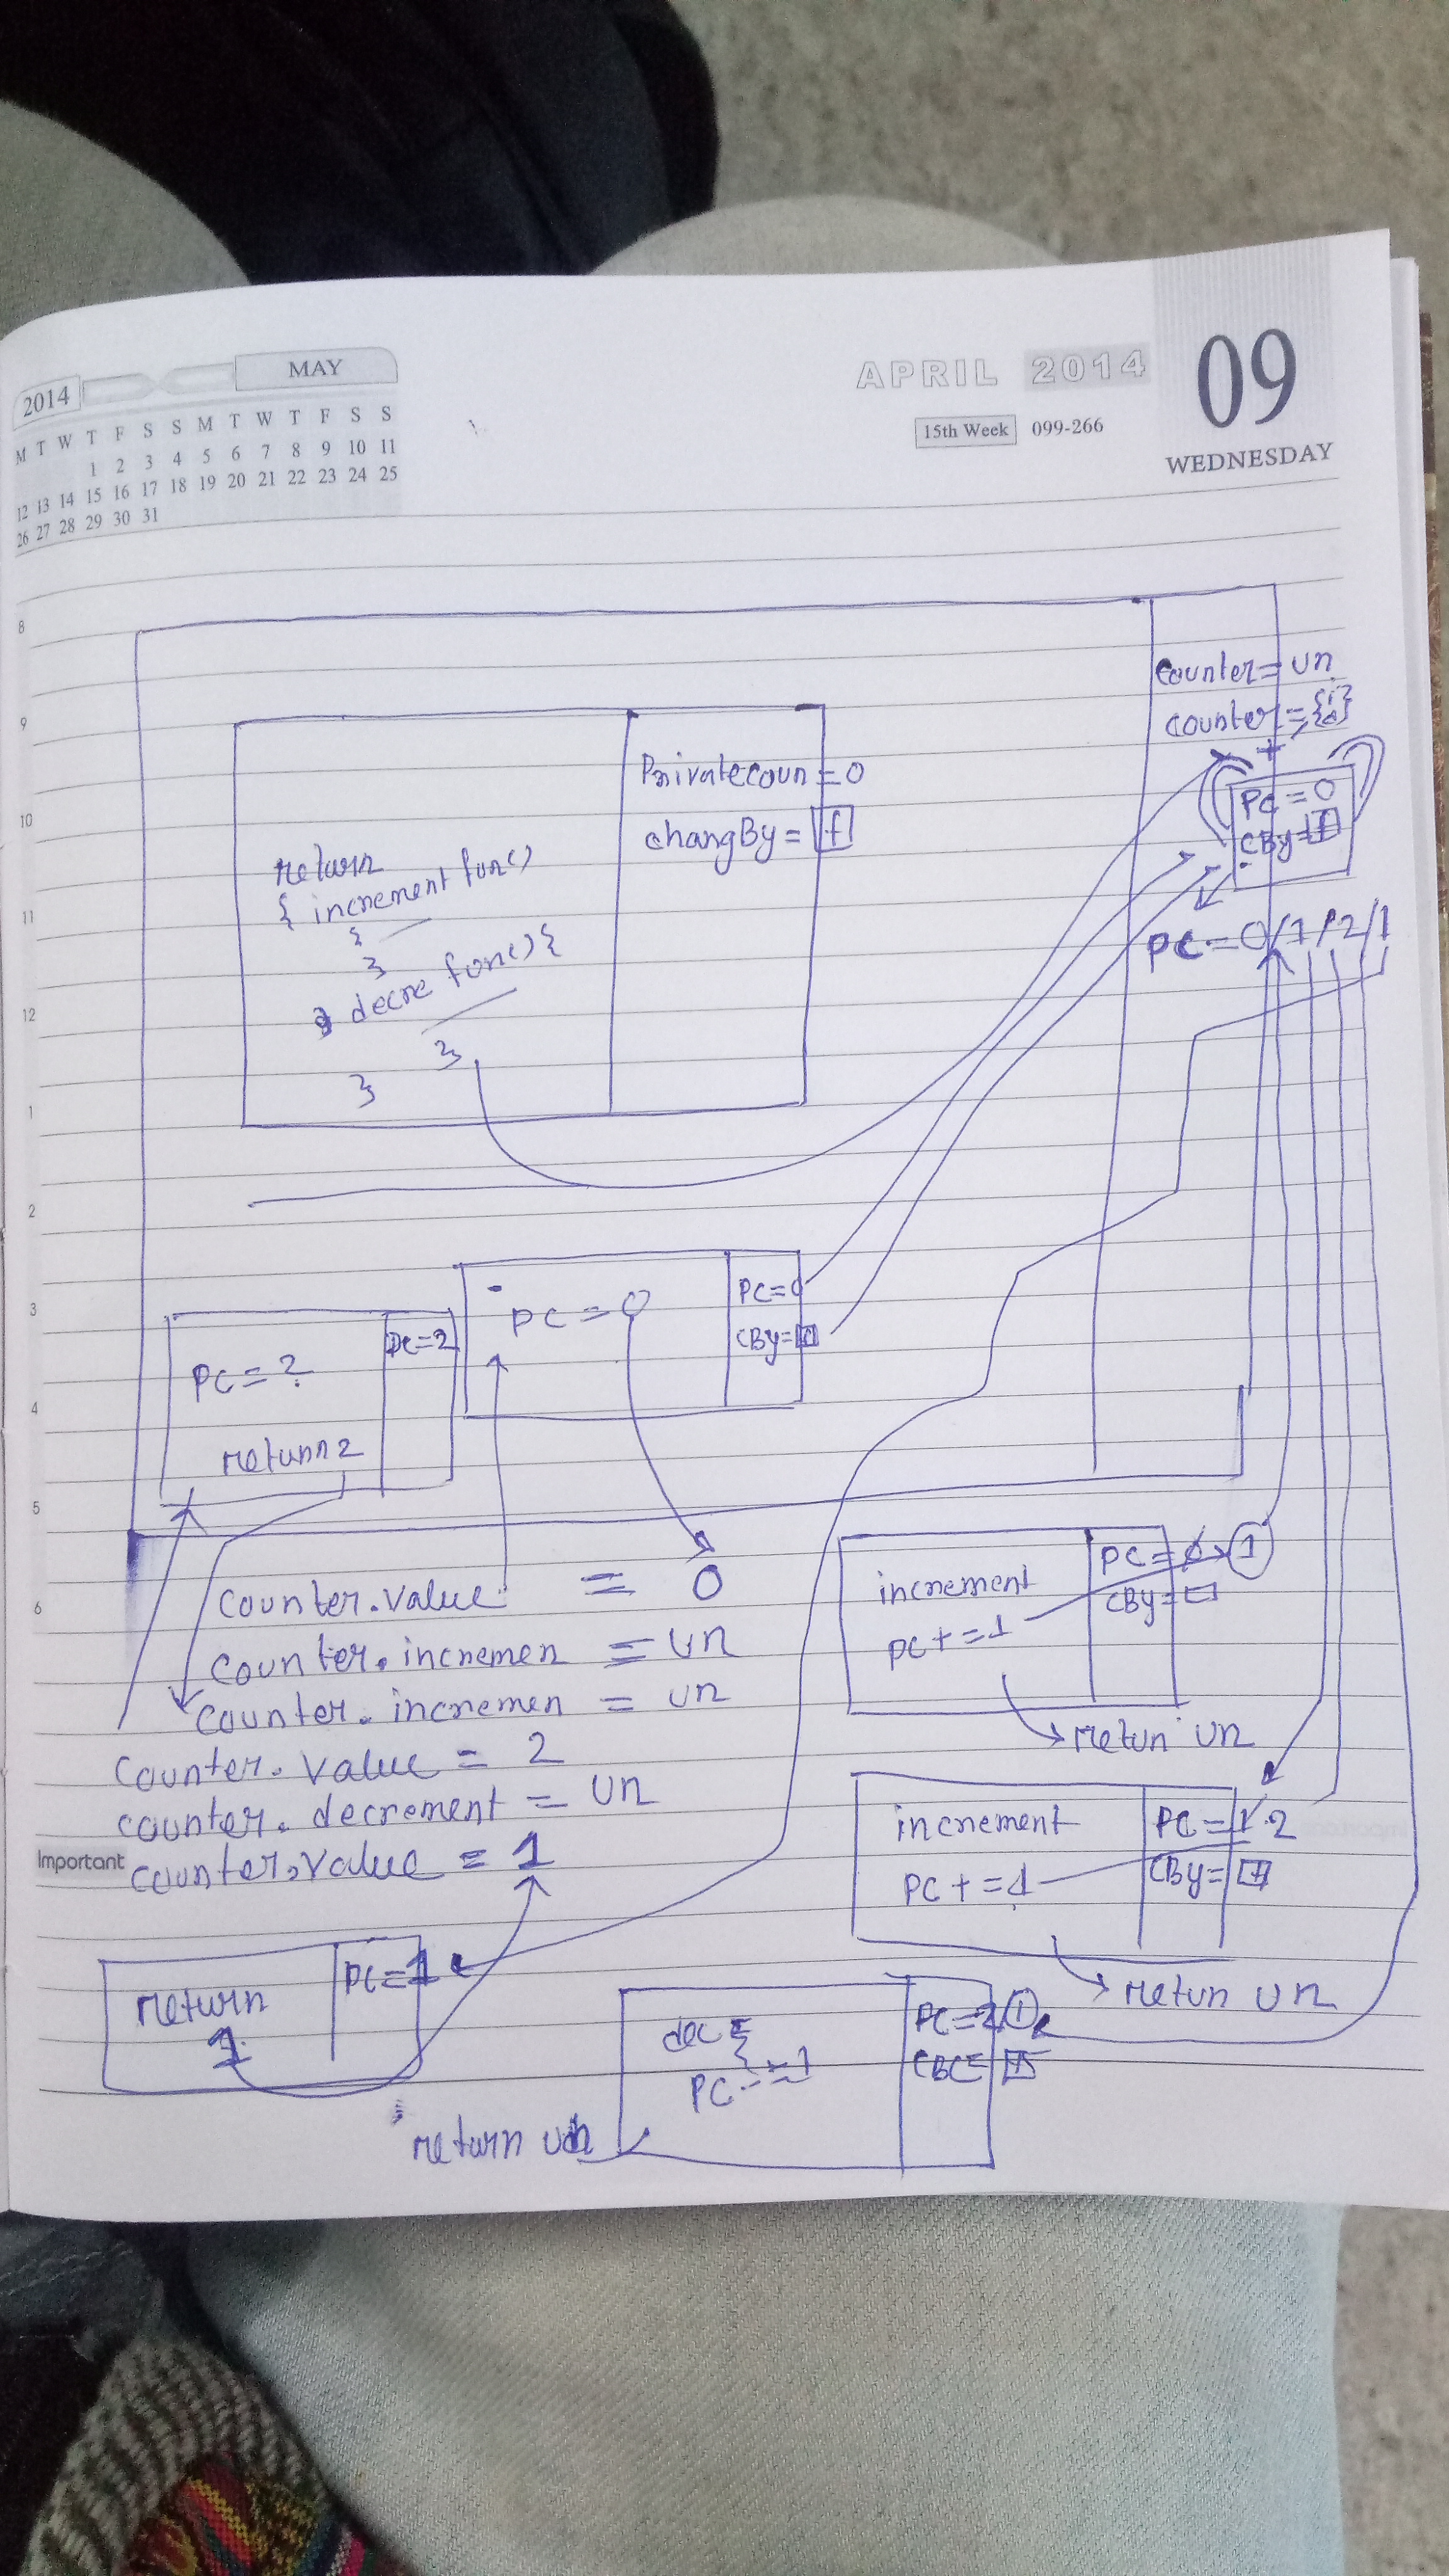 2014 MAY
M T W T F S S M T W T F S S
1 2 3 4 5 6 7 8 9 10 11
12 13 14 15 16 17 18 19 20 21 22 23 24 25
26 27 28 29 30 31
APRIL 2014
15th Week 099-266
09
WEDNESDAY
8
9
10
11
12
1
2
3
4
5
6
Important
Counter = un
counter = {
PC = 0
CBy = f
PC = 0/1/2/1
Privatecoun = 0
changBy = f
return
{ increment func()
{
}
decre func() {
}
}
PC = 0
PC=0
CBy=
PC = 2
PC=2
return 2
counter.value = 0
counter.incremen = un
counter.incremen = un
counter.value = 2
counter.decrement = un
counter.value = 1
increment
PC += 1
PC = 0 1
CBy =
retun un
increment
PC += 1
PC = 1 2
CBy =
retun un
return
1
PC = 1
dec {
PC -= 1
PC = 2 1
CBC =
return un